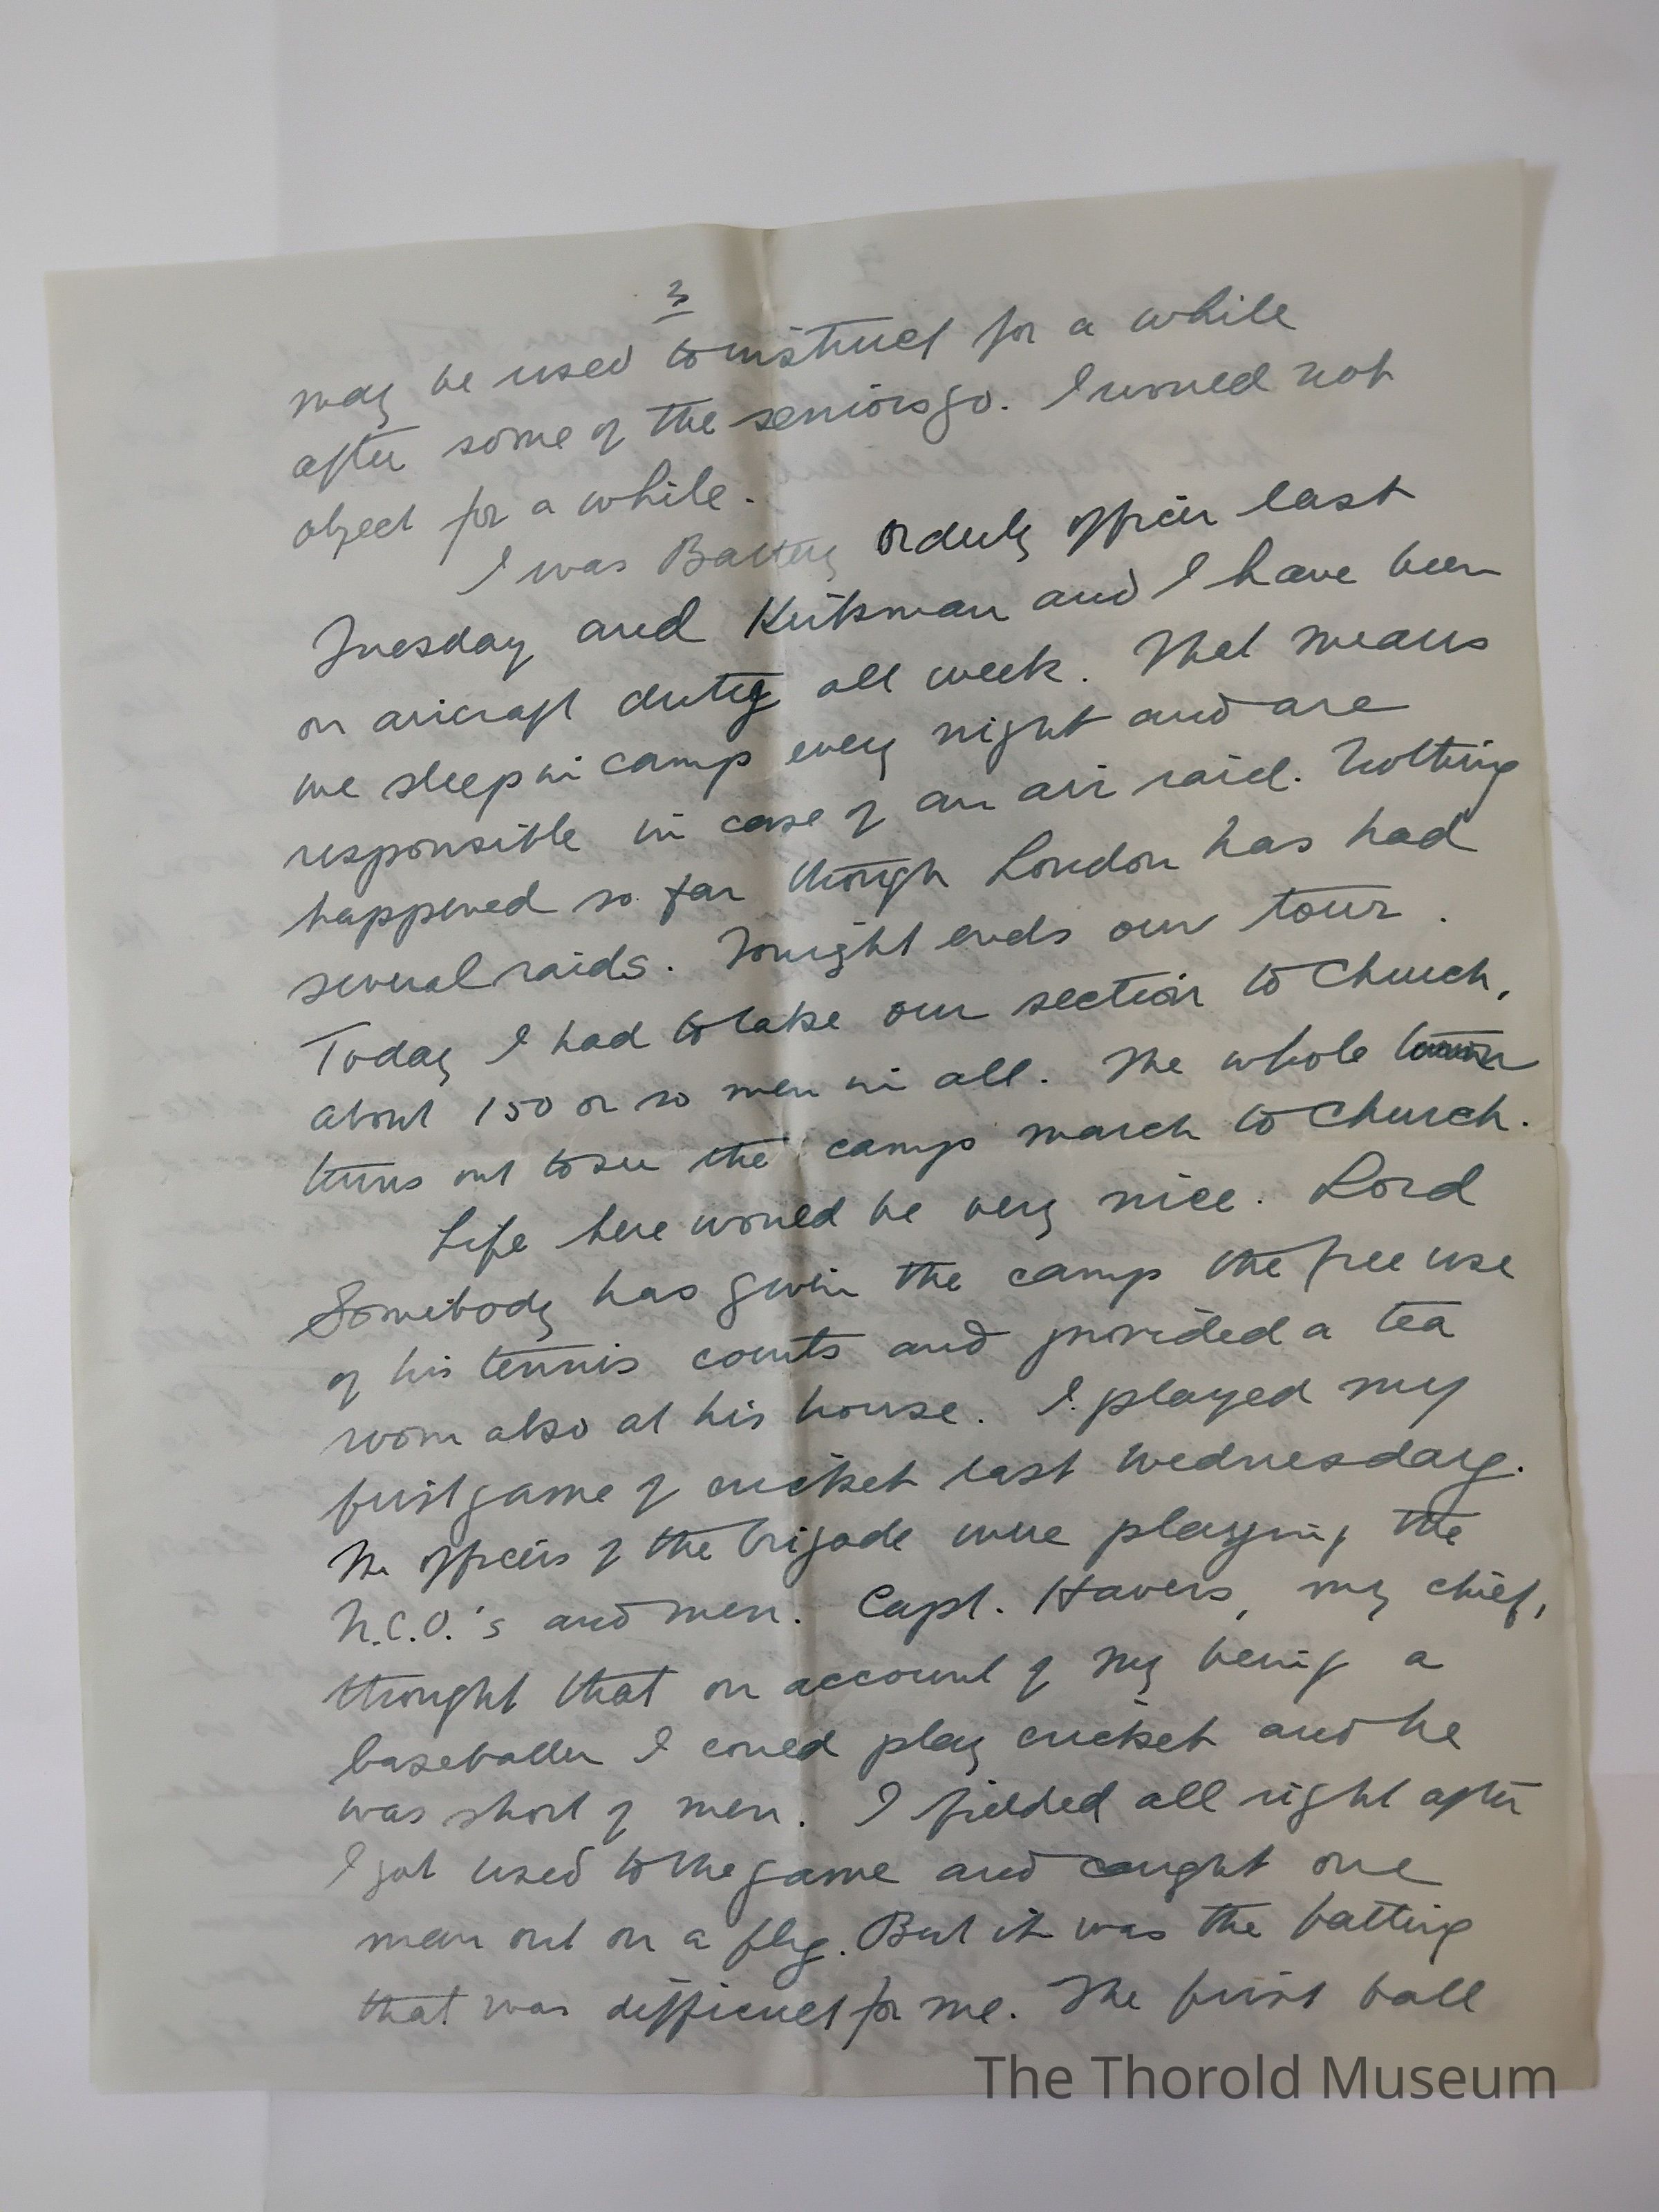 3
may be used to instruct for a while
after some of the seniors go. I would not
object for a while.
I was Battery orderly officer last
Tuesday and Kirksman and I have been
on aircraft duty all week. That means
we sleep in camp every night and are
responsible in case of an air raid. Nothing
happened so far though London has had
several raids. Tonight ends our tour.
Today I had to take our section to Church,
about 150 or so men in all. The whole town
turns out to see the camp march to Church.
Life here would be very nice. Lord
Somebody has given the camp the free use
of his tennis courts and provided a tea
room also at his house. I played my
first game of cricket last Wednesday.
The officers of the brigade were playing the
N.C.O.'s and men. Capt. Havers, my chief,
thought that on account of my being a
baseballer I could play cricket and he
was short of men. I fielded all right after
I got used to the game and caught one
man out on a fly. But it was the batting
that was difficult for me. The first ball
The Thorold Museum